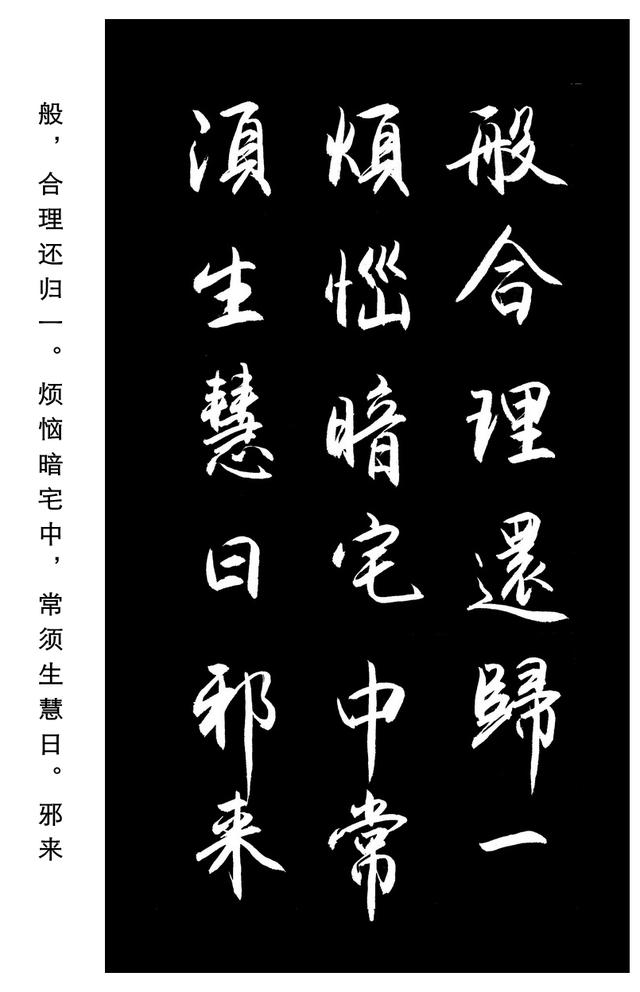 般合理還歸一
煩惱暗宅中常
須生慧日邪来
般，合理还归一。烦恼暗宅中，常须生慧日。邪来